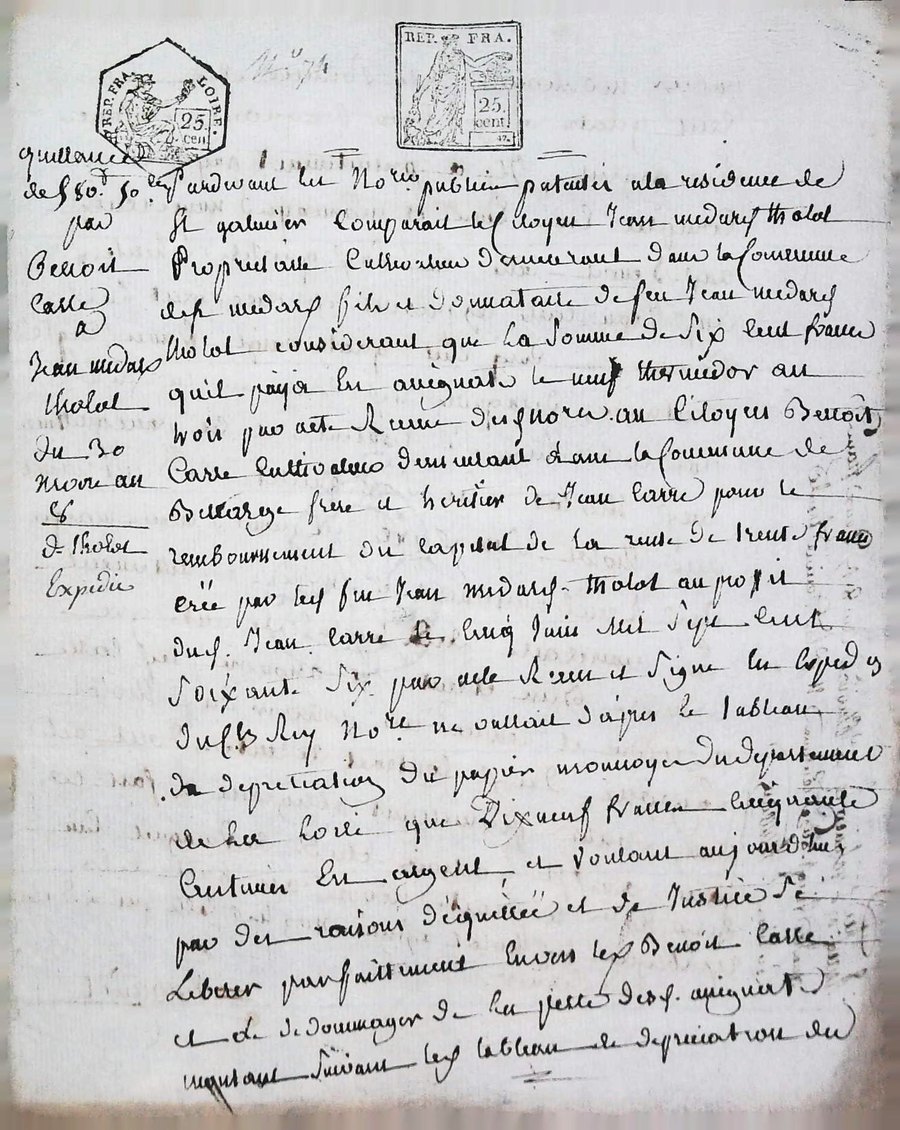 REP. FRA. LOIRE.
25 cen.
REP. FRA.
25 cent.
quittance
de 580ᶠ 50
par
Benoit
Carre
a
Jean medard
tholot
du 30
an
8
d. tholot
Expedié
Pardevant les Noʳᵉˢ publics patentés a la residence de
St galmier Comparait le Citoyen Jean medard tholot
Proprietaire Cultivateur demeurant dans la Commune
de medard fils et donnataire de feu Jean medard
tholot considerant que la Somme de Six Cent francs
quil paya En assignats le neuf thermidor an
trois par acte Recue au Citoyen Benoît
Carre Cultivateur demeurant dans la Commune de
Bellegarde frere et heritier de Jean Carre pour le
remboursement du Capital de la rente de trente francs
créé par led. feu Jean medard tholot au profit
dud. Jean Carre le Cinq Juin Mil Sept Cent
Soixante Six par acte Recue et Signe En Exped
Noʳᵉ ne vallait d'apres le tableau
de depretiation du papier monnoye du departement
de La Loire que Dixneuf francs Cinquante
Centimes En argent, et voulant aujourd'huy
par des raisons d'équittée et de Justice Se
Liberer parfaittement Envers led. Benoit Carre
et de dedommager de la perte desd. assignats
montant Suivant led. tableau de depreciation du